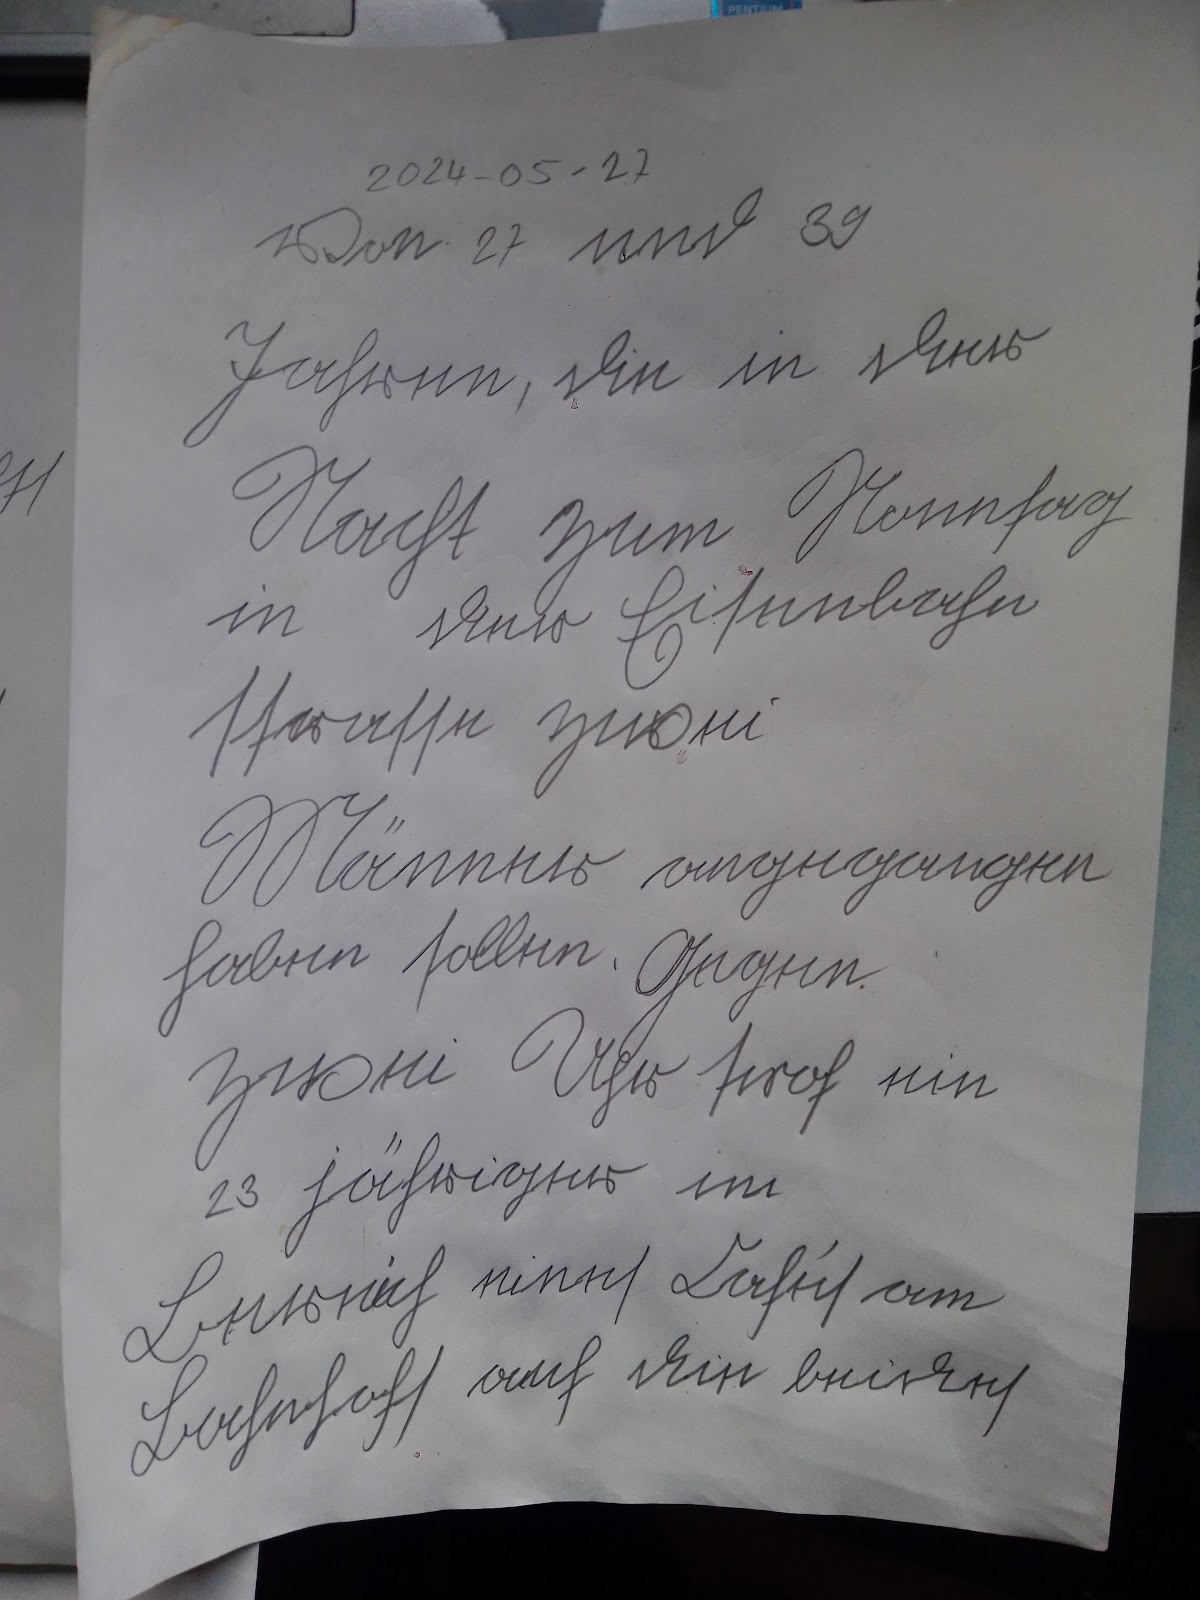 PENTIUM
2024-05-27
Von 27 und 39
Jahren, die in der
Nacht zum Sonntag
in der Eisenbahn
strasse zwei
Männer angegangen
haben sollen. Gegen
zwei Uhr traf ein
23 jähriger im
Bereich eines Cafés am
Bahnhofs auf die beides